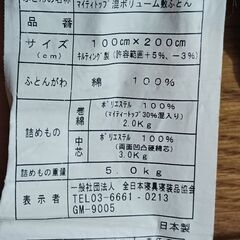 マイティトップ 混ボリューム敷ふとん
品番
サイズ (cm) 100cm×200cm
キルティング製 (許容範囲+5%、-3%)
ふとんがわ 綿 100%
詰めもの 巻綿 ポリエステル 100%
(マイティートップ30%混入り)
2.0Kg
中芯 ポリエステル 100%
(両面凹凸硬綿芯)
3.0Kg
詰めもの重量 5.0kg
表示者 一般社団法人 全日本寝具寝装品協会
TEL03-6661-0213
GM-9005
日本製